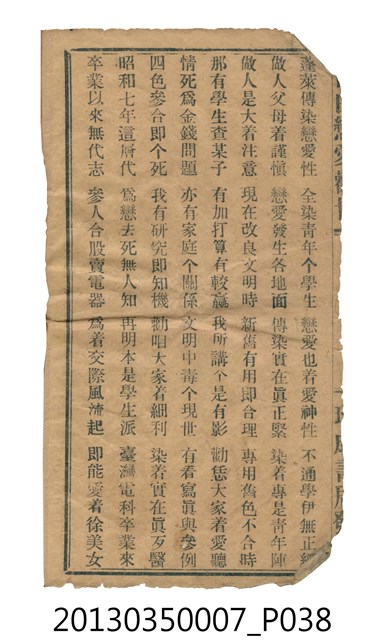 蓬萊傳染戀愛性 全染青年个學生 戀愛也着愛神性 不通學伊無正經
做人父母着謹慎 戀愛發生各地面 傳染實在眞正緊 染着專是青年陣
做人是大着注意 現在改良文明時 新舊有用即合理 專用舊色不合時
那有學生查某子 有加打算有較贏 我所講个是有影 勸恁大家着愛聽
情死爲金錢問題 亦有家庭个關係 文明中毒个現世 有看寫眞與參例
四色參合即个死 我有研究即知機 勸唱大家着細利 染着實在眞歹醫
昭和七年這層代 爲戀去死無人知 再明本是學生派 臺灣電科卒業來
卒業以來無代志 參人合股賣電器 爲着交際風流起 即能愛着徐美女
20130350007_P038